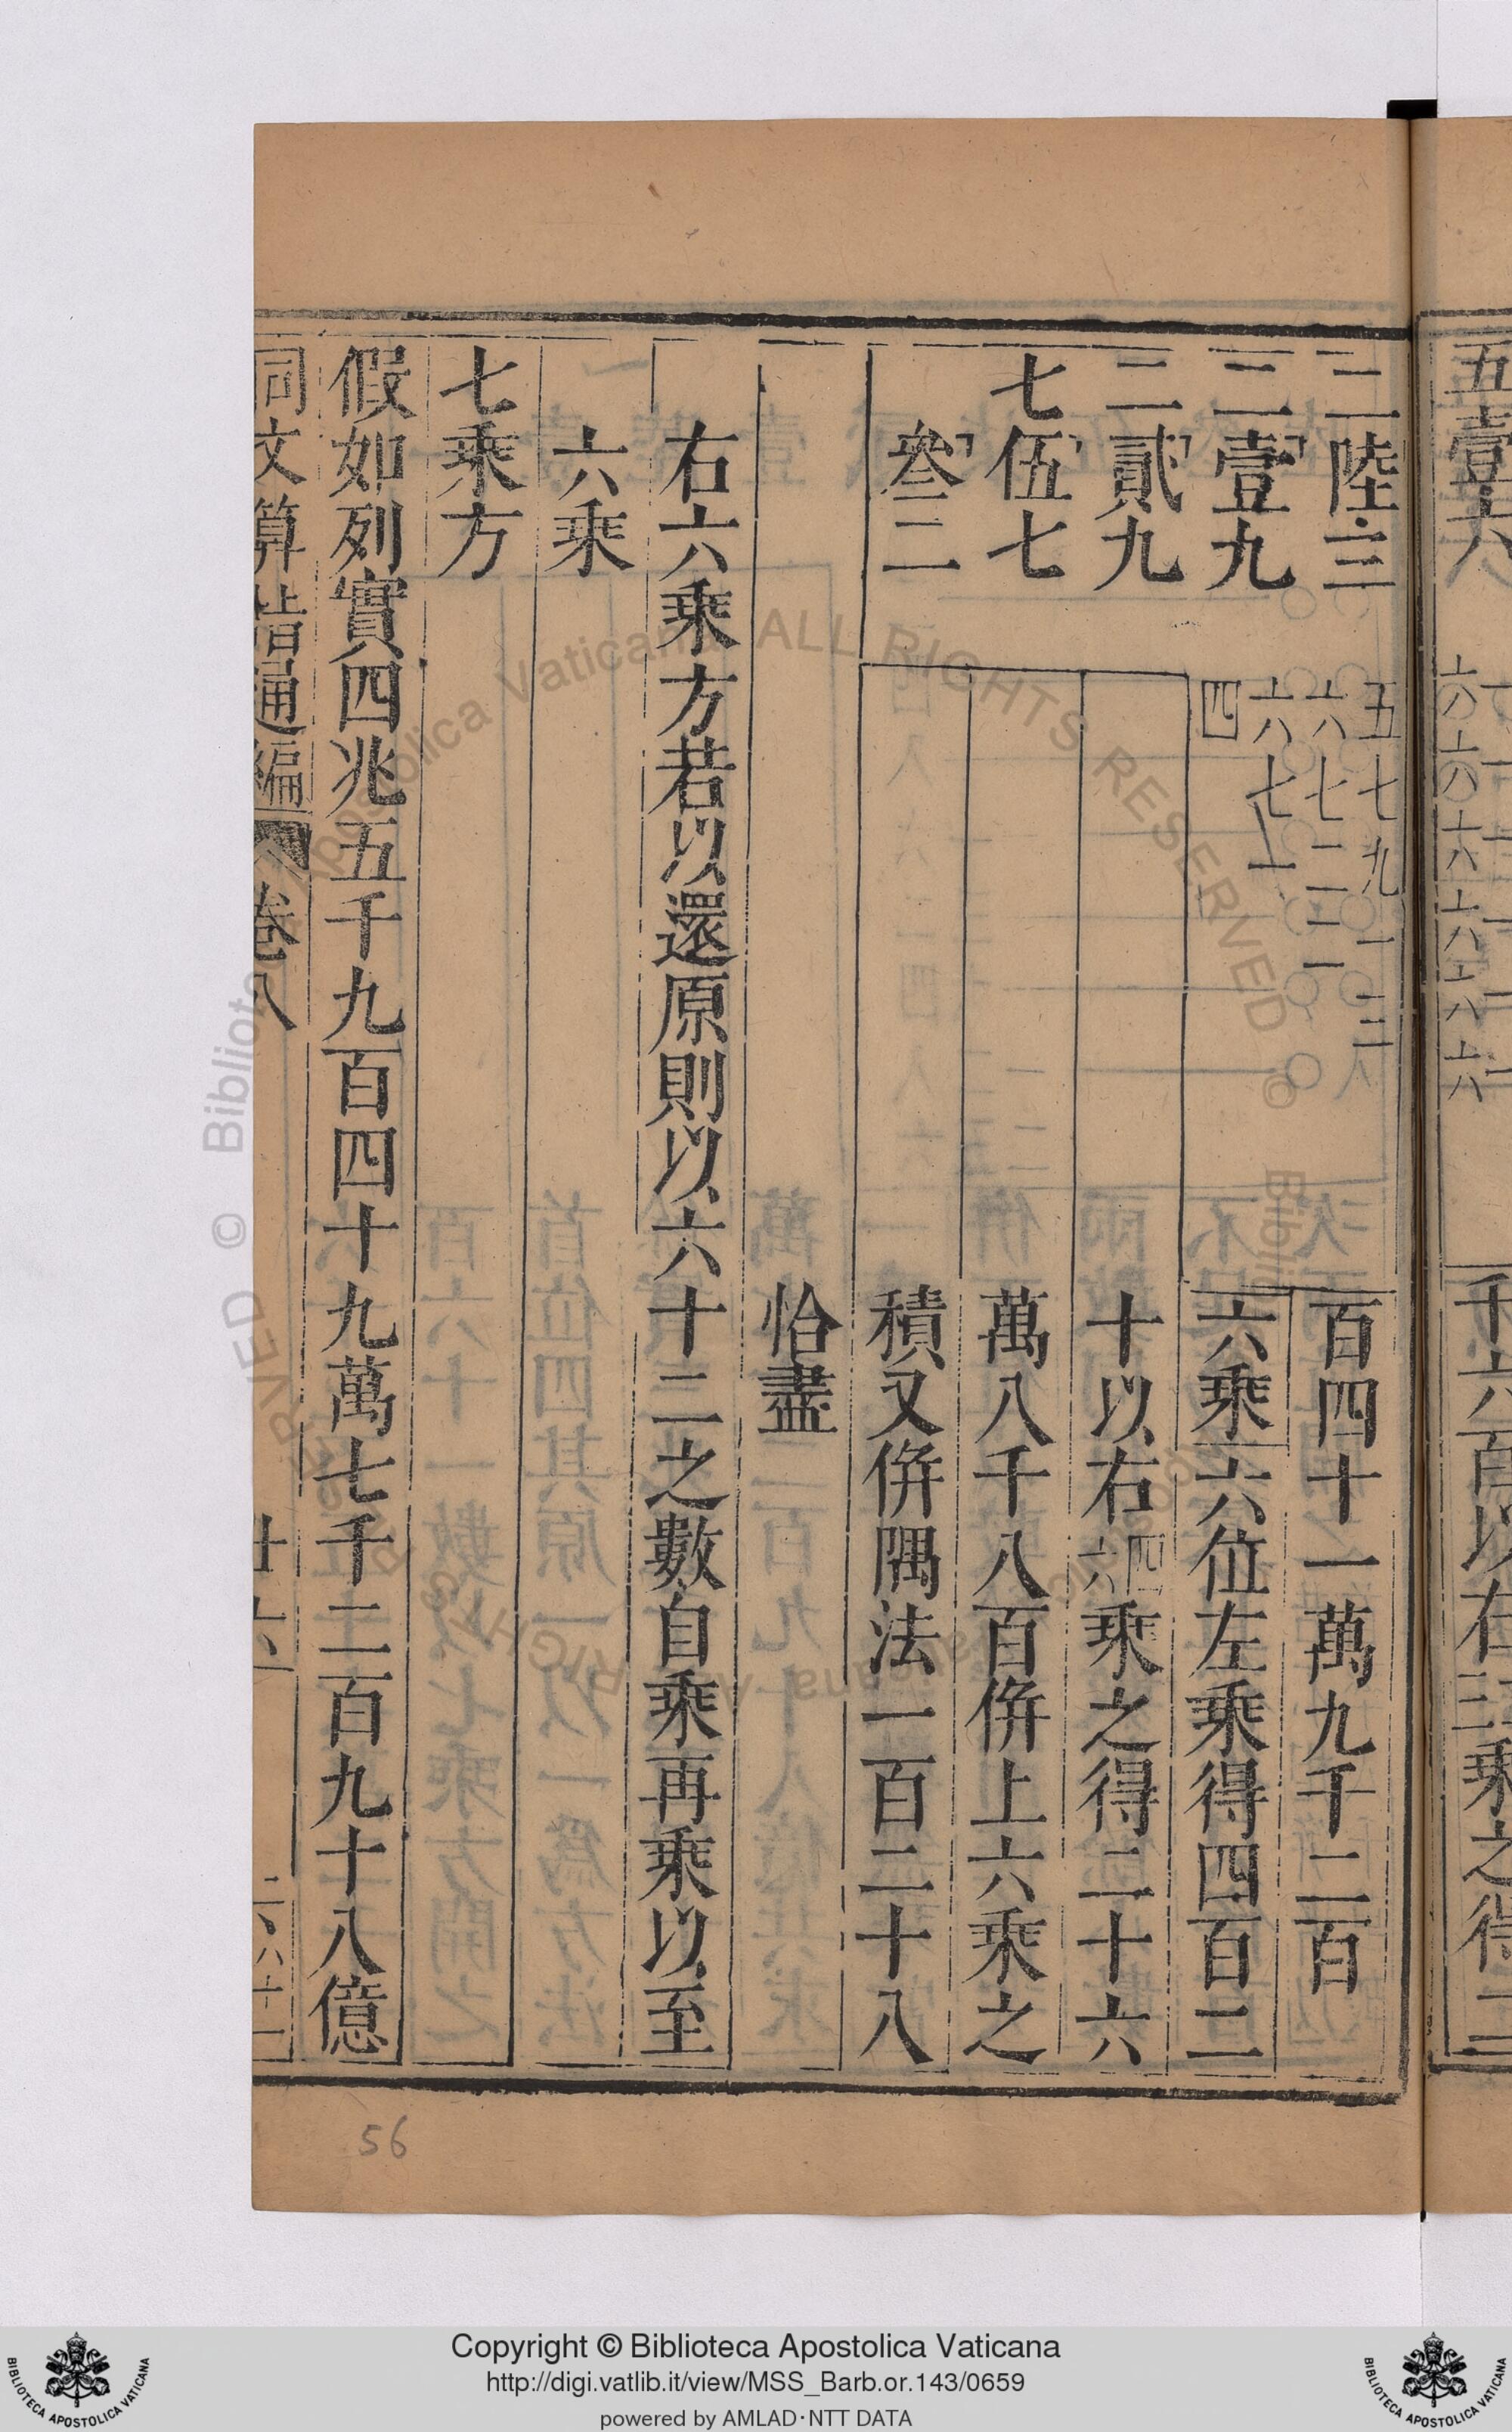 三陸三
二壹九
二貳九
七伍七
叄二
五七九一三
六七二二一
六七一
四
百四十一萬九千二百
六乘六位左乘得四百二
十以右四六乘之得二十六
萬八千八百倂上六乘之
積又倂隅法一百二十八
恰盡
右六乘方若以還原則以六十二之數自乘再乘以至
六乘
七乘方
假如列實四兆五千九百四十九萬七千二百九十八億
同文算指通編
卷八
56
Copyright © Biblioteca Apostolica Vaticana
http://digi.vatlib.it/view/MSS_Barb.or.143/0659
powered by AMLAD·NTT DATA